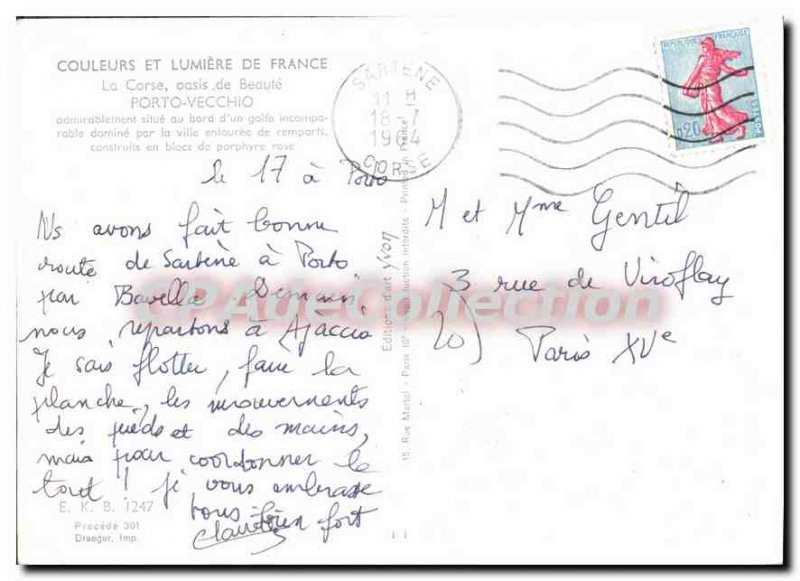 COULEURS ET LUMIÈRE DE FRANCE
La Corse, oasis de Beauté
PORTO-VECCHIO
admirablement situé au bord d'un golfe incompa-
rable dominé par la ville entourée de remparts,
construits en blocs de porphyre rose
SARTENE
11 H
18-7
1964
CORSE
REPUBLIQUE FRANÇAISE
0,20
POSTES
le 17 à Porto
Ns avons fait bonne
route de Sartène à Porto
par Bavella. Demain
nous repartons à Ajaccio
Je sais flotter, faire la
planche, les mouvements
des pieds et des mains,
mais pour coordonner le
tout ! je vous embrasse
tous bien fort
E. K. B. 1247
Procédé 301
Draeger, Imp.
Editions d'art Yvon
15, Rue Martel - Paris 10e - Reproduction interdite - Printed in France
M et Mme Gentil
3 rue de Viroflay
20)
Paris XVe
CPAdeCollection